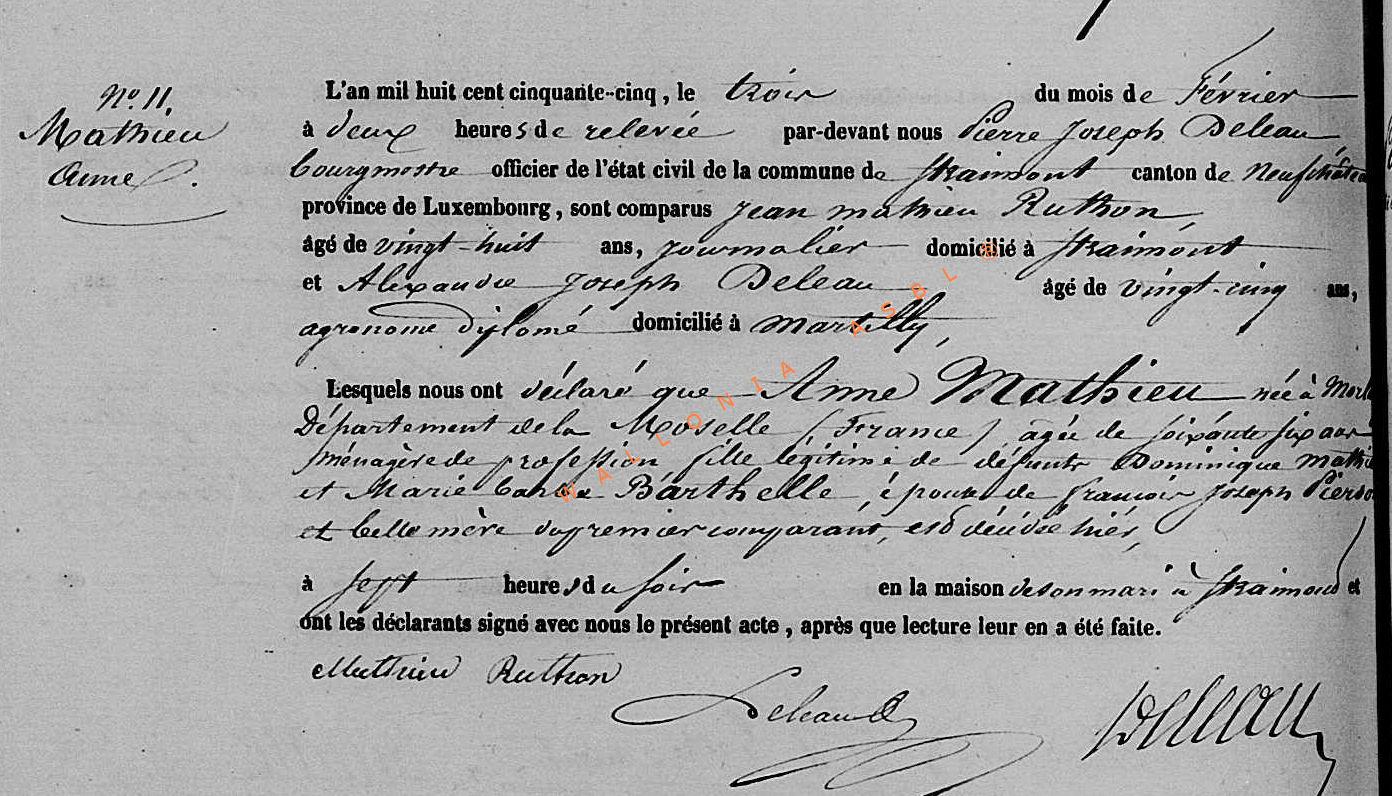 N° 11.
Mathieu
Anne
L'an mil huit cent cinquante-cinq, le trois du mois de Février
à deux heures de relevée par-devant nous Pierre Joseph Deleau
bourgmestre officier de l'état civil de la commune de Straimont canton de Neufchâteau
province de Luxembourg, sont comparus Jean Mathieu Ruthon
âgé de vingt-huit ans, journalier domicilié à Straimont
et Alexandre Joseph Deleau âgé de vingt-cinq ans,
agronome diplomé domicilié à Martilly,
Lesquels nous ont déclaré que Anne Mathieu née à
Département de la Moselle (France) agée de soixante six ans
ménagère de profession fille légitime de défunts Dominique
et Marie Barthelle, épouse de francois Joseph
et belle mère du premier comparant, est décédée hier,
à sept heures du soir en la maison de son mari à Straimont et
ont les déclarants signé avec nous le présent acte, après que lecture leur en a été faite.
Mathieu Ruthon
Deleau
Deleau
WALLONIA ASBL ®